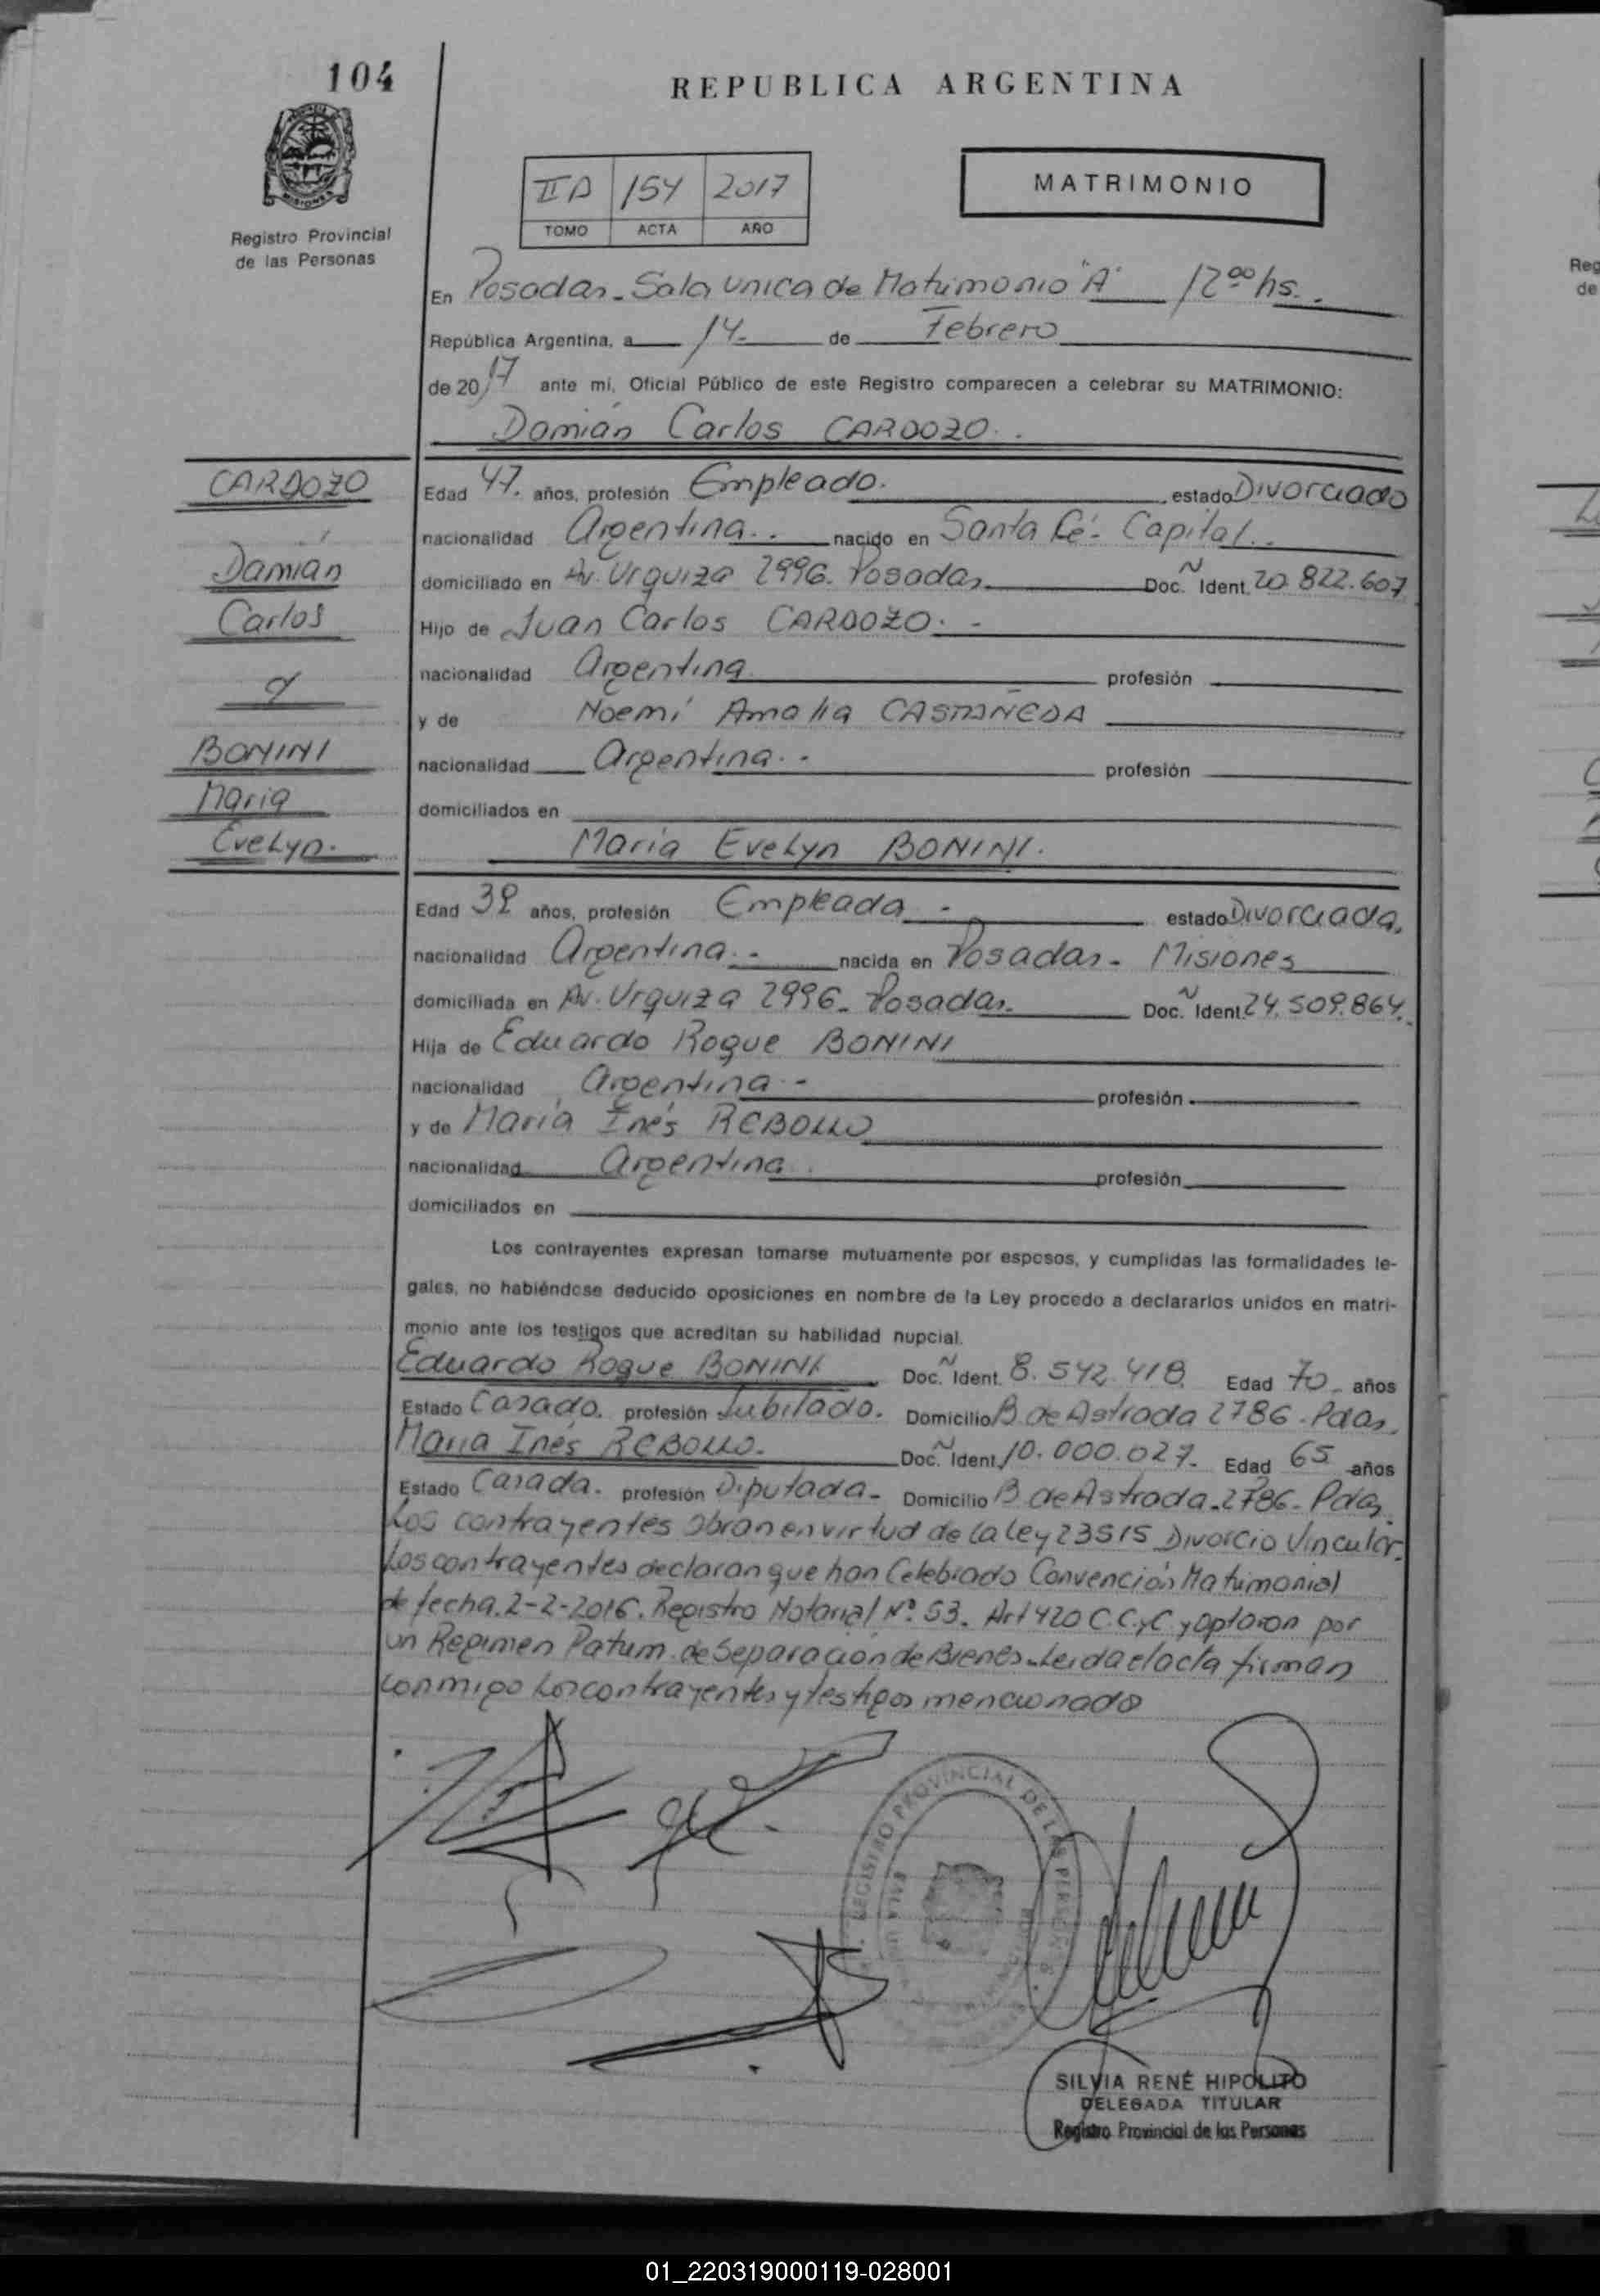 104
REPUBLICA ARGENTINA
Registro Provincial
de las Personas
II D 154 2017
TOMO ACTA AÑO
MATRIMONIO
En Posadas - Sala unica de Matrimonio "A" 12 00 hs.
República Argentina, a 14 de Febrero
de 2017 ante mí, Oficial Público de este Registro comparecen a celebrar su MATRIMONIO:
Damián Carlos CARDOZO.
CARDOZO
Damián
Carlos
y
BONINI
Maria
Evelyn.
Edad 47. años, profesión Empleado. estado Divorciado
nacionalidad Argentina.. nacido en Santa Fé - Capital..
domiciliado en Av. Urquiza 2996. Posadas Doc. N Ident. 20.822.607
Hijo de Juan Carlos CARDOZO. -
nacionalidad Argentina profesión
y de Noemí Amalia CASTAÑEDA
nacionalidad Argentina.. profesión
domiciliados en
Maria Evelyn BONINI.
Edad años, profesión Empleada - estado Divorciada,
nacionalidad Argentina.. nacida en Posadas - Misiones
domiciliada en Av. Urquiza 2996 - Posadas. Doc. N Ident. 24.509.864.
Hija de Eduardo Roque BONINI
nacionalidad Argentina.- profesión
y de Maria Inés REBOLLO
nacionalidad Argentina. profesión
domiciliados en
Los contrayentes expresan tomarse mutuamente por esposos, y cumplidas las formalidades le-
gales, no habiéndose deducido oposiciones en nombre de la Ley procedo a declararlos unidos en matri-
monio ante los testigos que acreditan su habilidad nupcial.
Eduardo Roque BONINI Doc. N Ident. 8.542.418. Edad 70 - años
Estado Casado. profesión Jubilado. Domicilio B. de Astrada 2786 - Pdas,
Maria Inés REBOLLO. Doc. N Ident. 10.000.027. Edad 65 años
Estado Casada. profesión Diputada - Domicilio B. de Astrada - 2786 - Pdas.
Los contrayentes obran en virtud de la Ley 23515 Divorcio Vincular.
Los contrayentes declaran que han Celebrado Convención Matrimonial
de fecha. 2-2-2016. Registro Notarial Nº 53. Art 420 C.C.yC y optaron por
un Regimen Patrim. de Separación de Bienes. Leída el acta firman
conmigo los contrayentes y testigos mencionado
REGISTRO PROVINCIAL DE LAS PERSONAS
SILVIA RENÉ HIPOLITO
DELEGADA TITULAR
Registro Provincial de las Personas
01_220319000119-028001